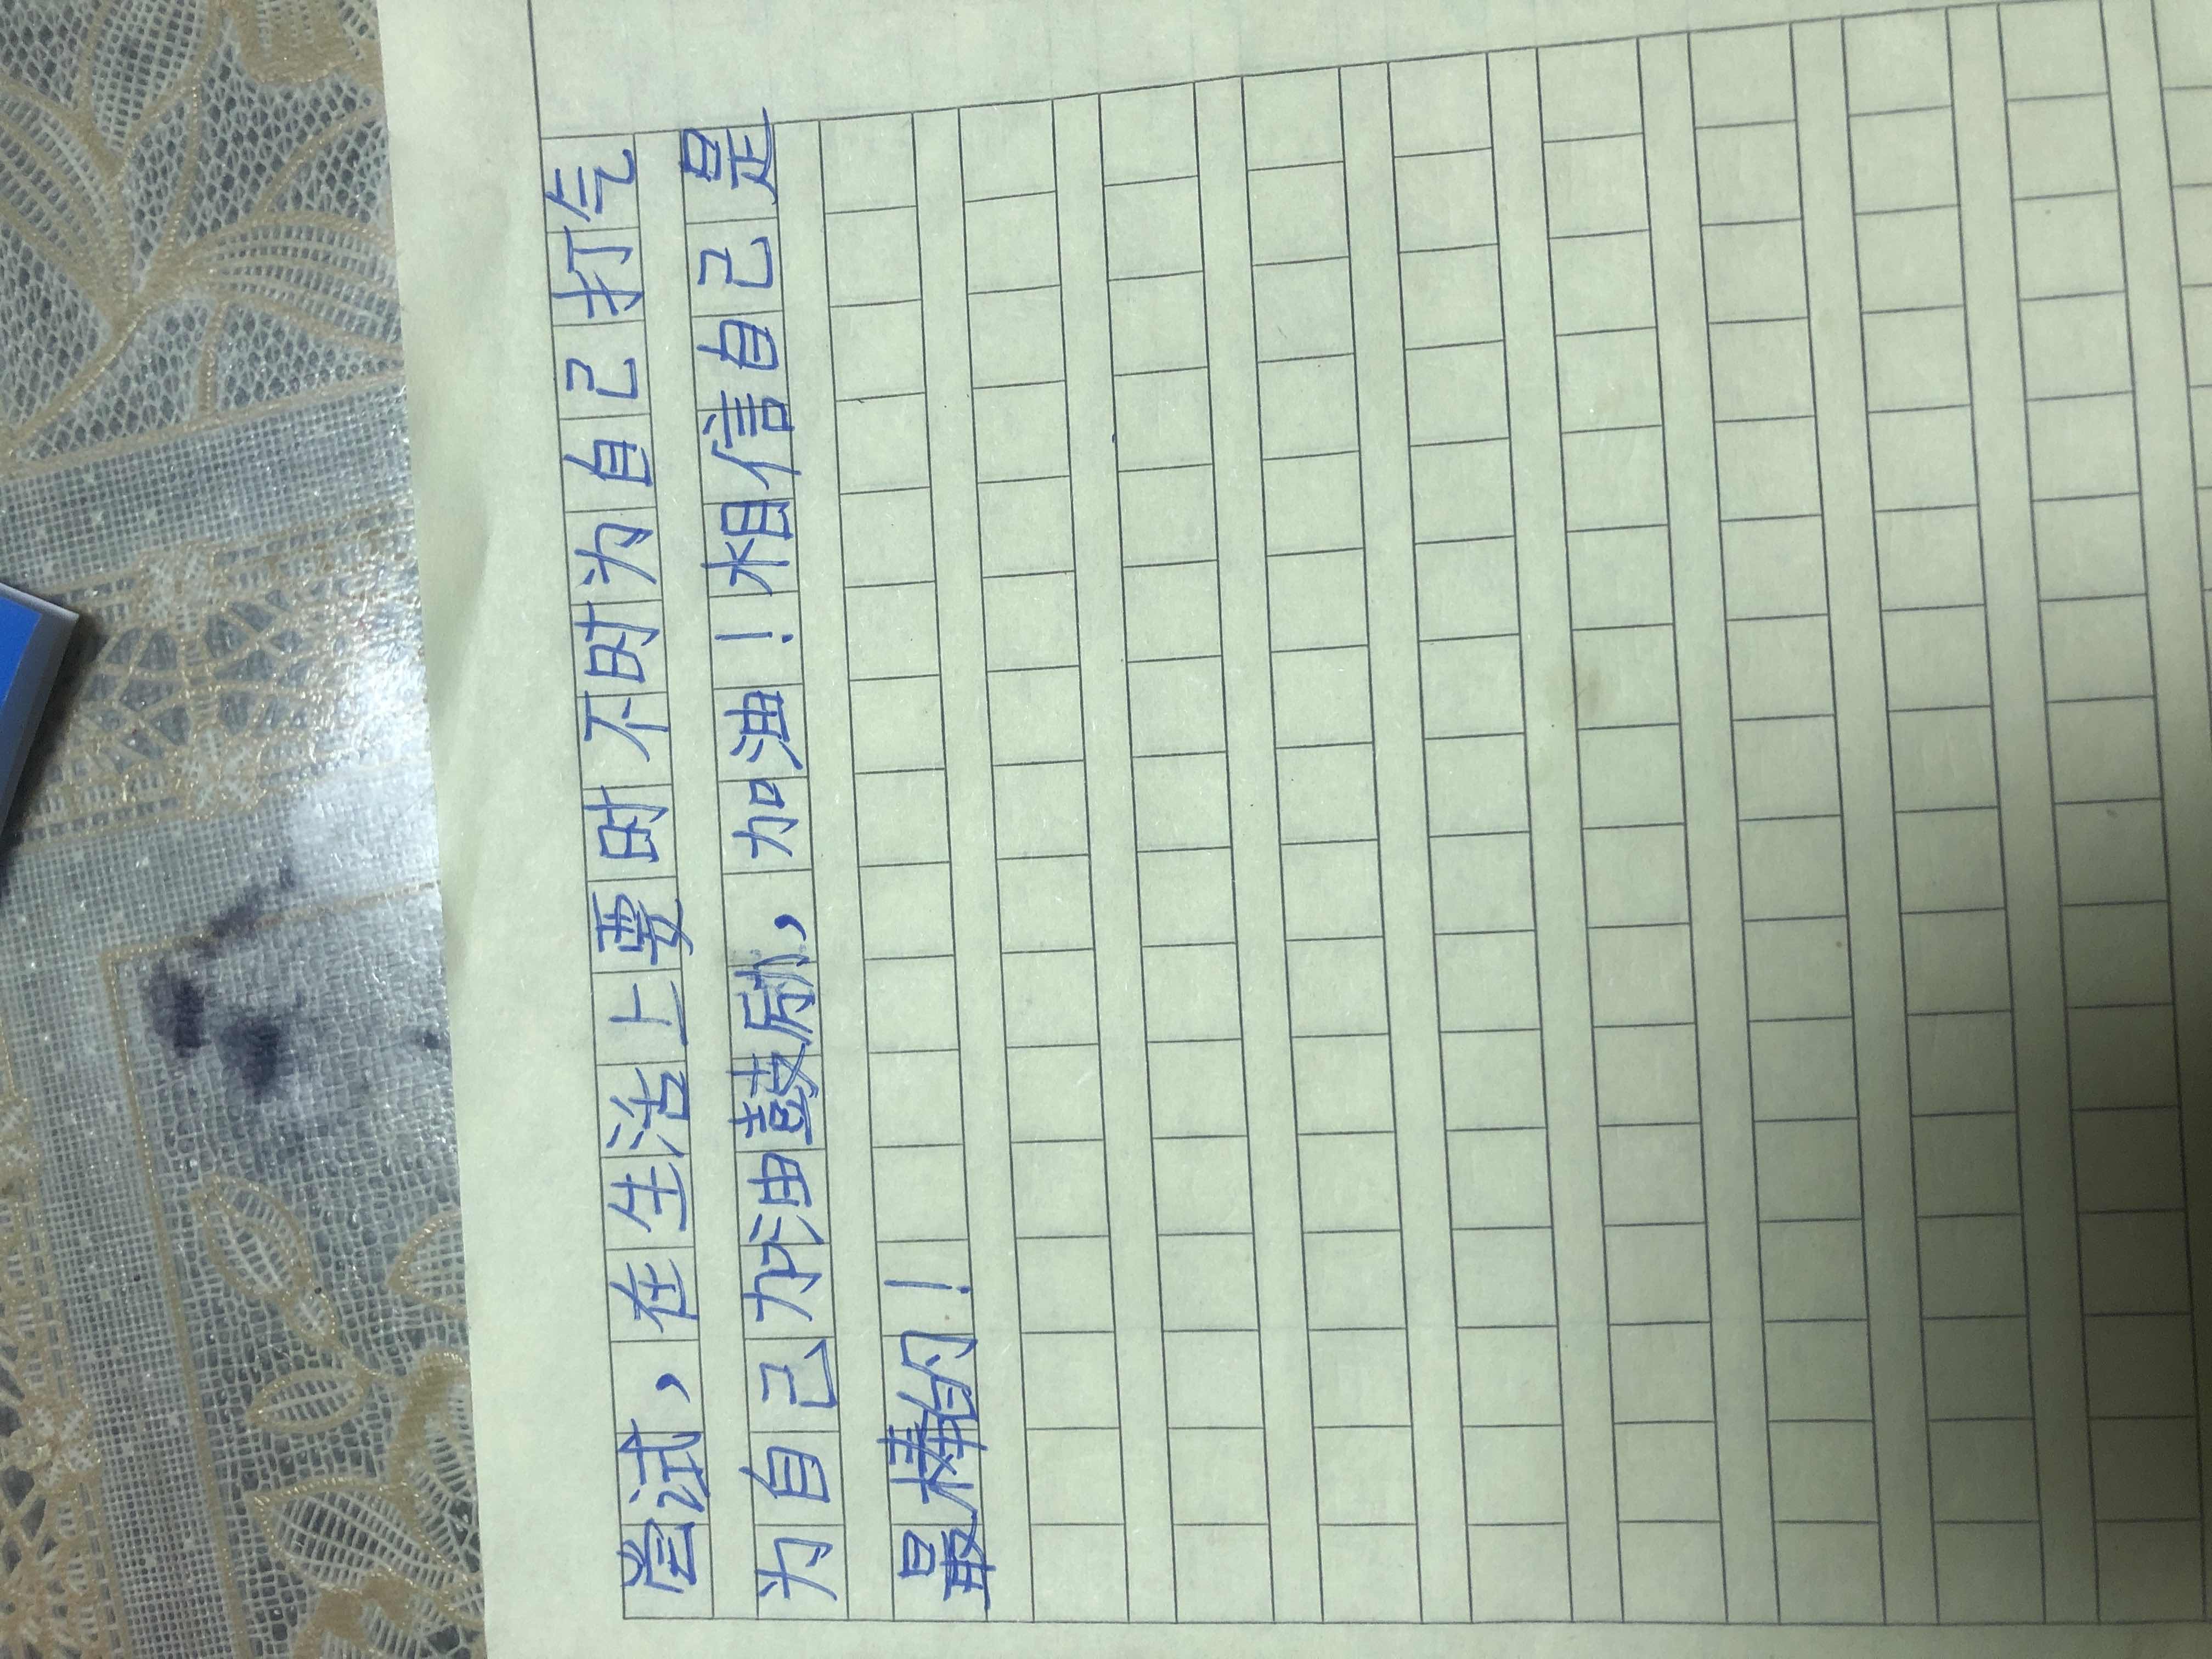 尝试，在生活上要时不时为自己打气
为自己加油鼓励，加油！相信自己是
最棒的！